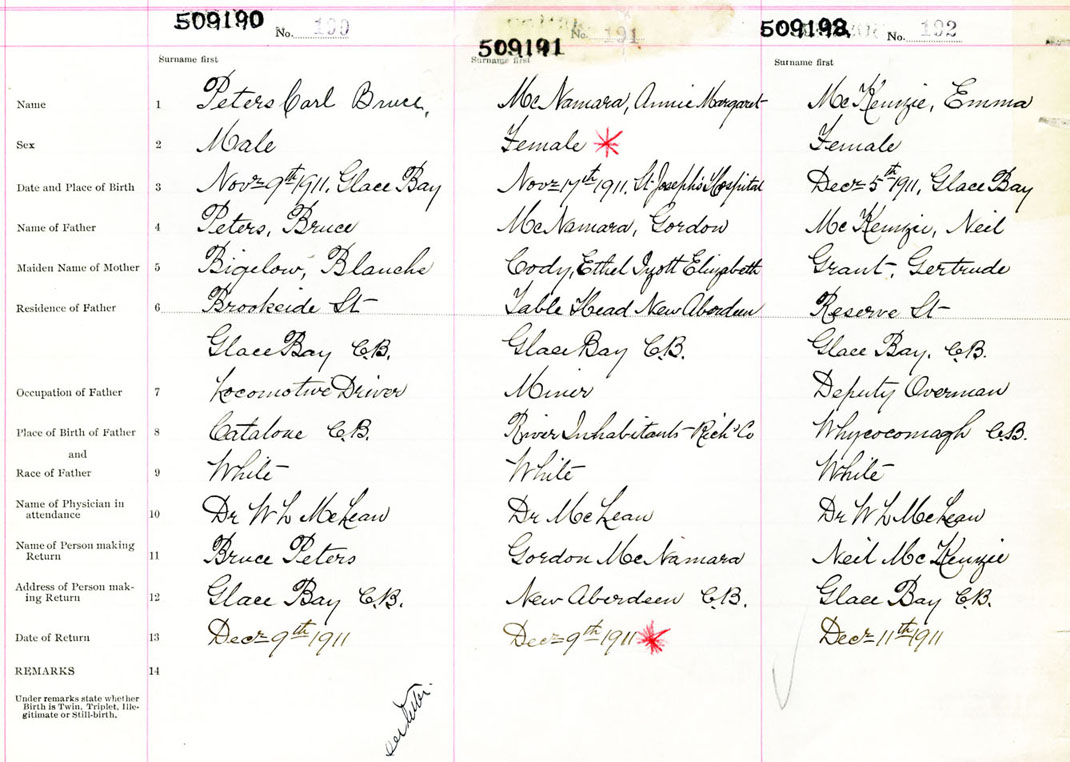 509190 No. 190 509191 No. 191 509192 No. 192
Surname first Surname first Surname first
Name 1 Peters Carl Bruce, McNamara, Annie Margaret McKenzie, Emma
Sex 2 Male Female * Female
Date and Place of Birth 3 Novr 9th 1911, Glace Bay Novr 17th 1911, St Joseph's Hospital Decr 5th 1911, Glace Bay
Name of Father 4 Peters, Bruce McNamara, Gordon McKenzie, Neil
Maiden Name of Mother 5 Bigelow, Blanche Cody, Ethel Elizabeth Grant, Gertrude
Residence of Father 6 Brookside St Table Head New Aberdeen Reserve St
Glace Bay C.B. Glace Bay C.B. Glace Bay. C.B.
Occupation of Father 7 Locomotive Driver Miner Deputy Overman
Place of Birth of Father 8 Catalone C.B. River Inhabitants Rich Co Whycocomagh C.B.
and
Race of Father 9 White White White
Name of Physician in
attendance 10 Dr W L McLean Dr McLean Dr W L McLean
Name of Person making
Return 11 Bruce Peters Gordon McNamara Neil McKenzie
Address of Person mak-
ing Return 12 Glace Bay C.B. New Aberdeen C.B. Glace Bay C.B.
Date of Return 13 Decr 9th 1911 Decr 9th 1911 * Decr 11th 1911
REMARKS 14
Under remarks state whether
Birth is Twin, Triplet, Ille-
gitimate or Still-birth.
see letter.